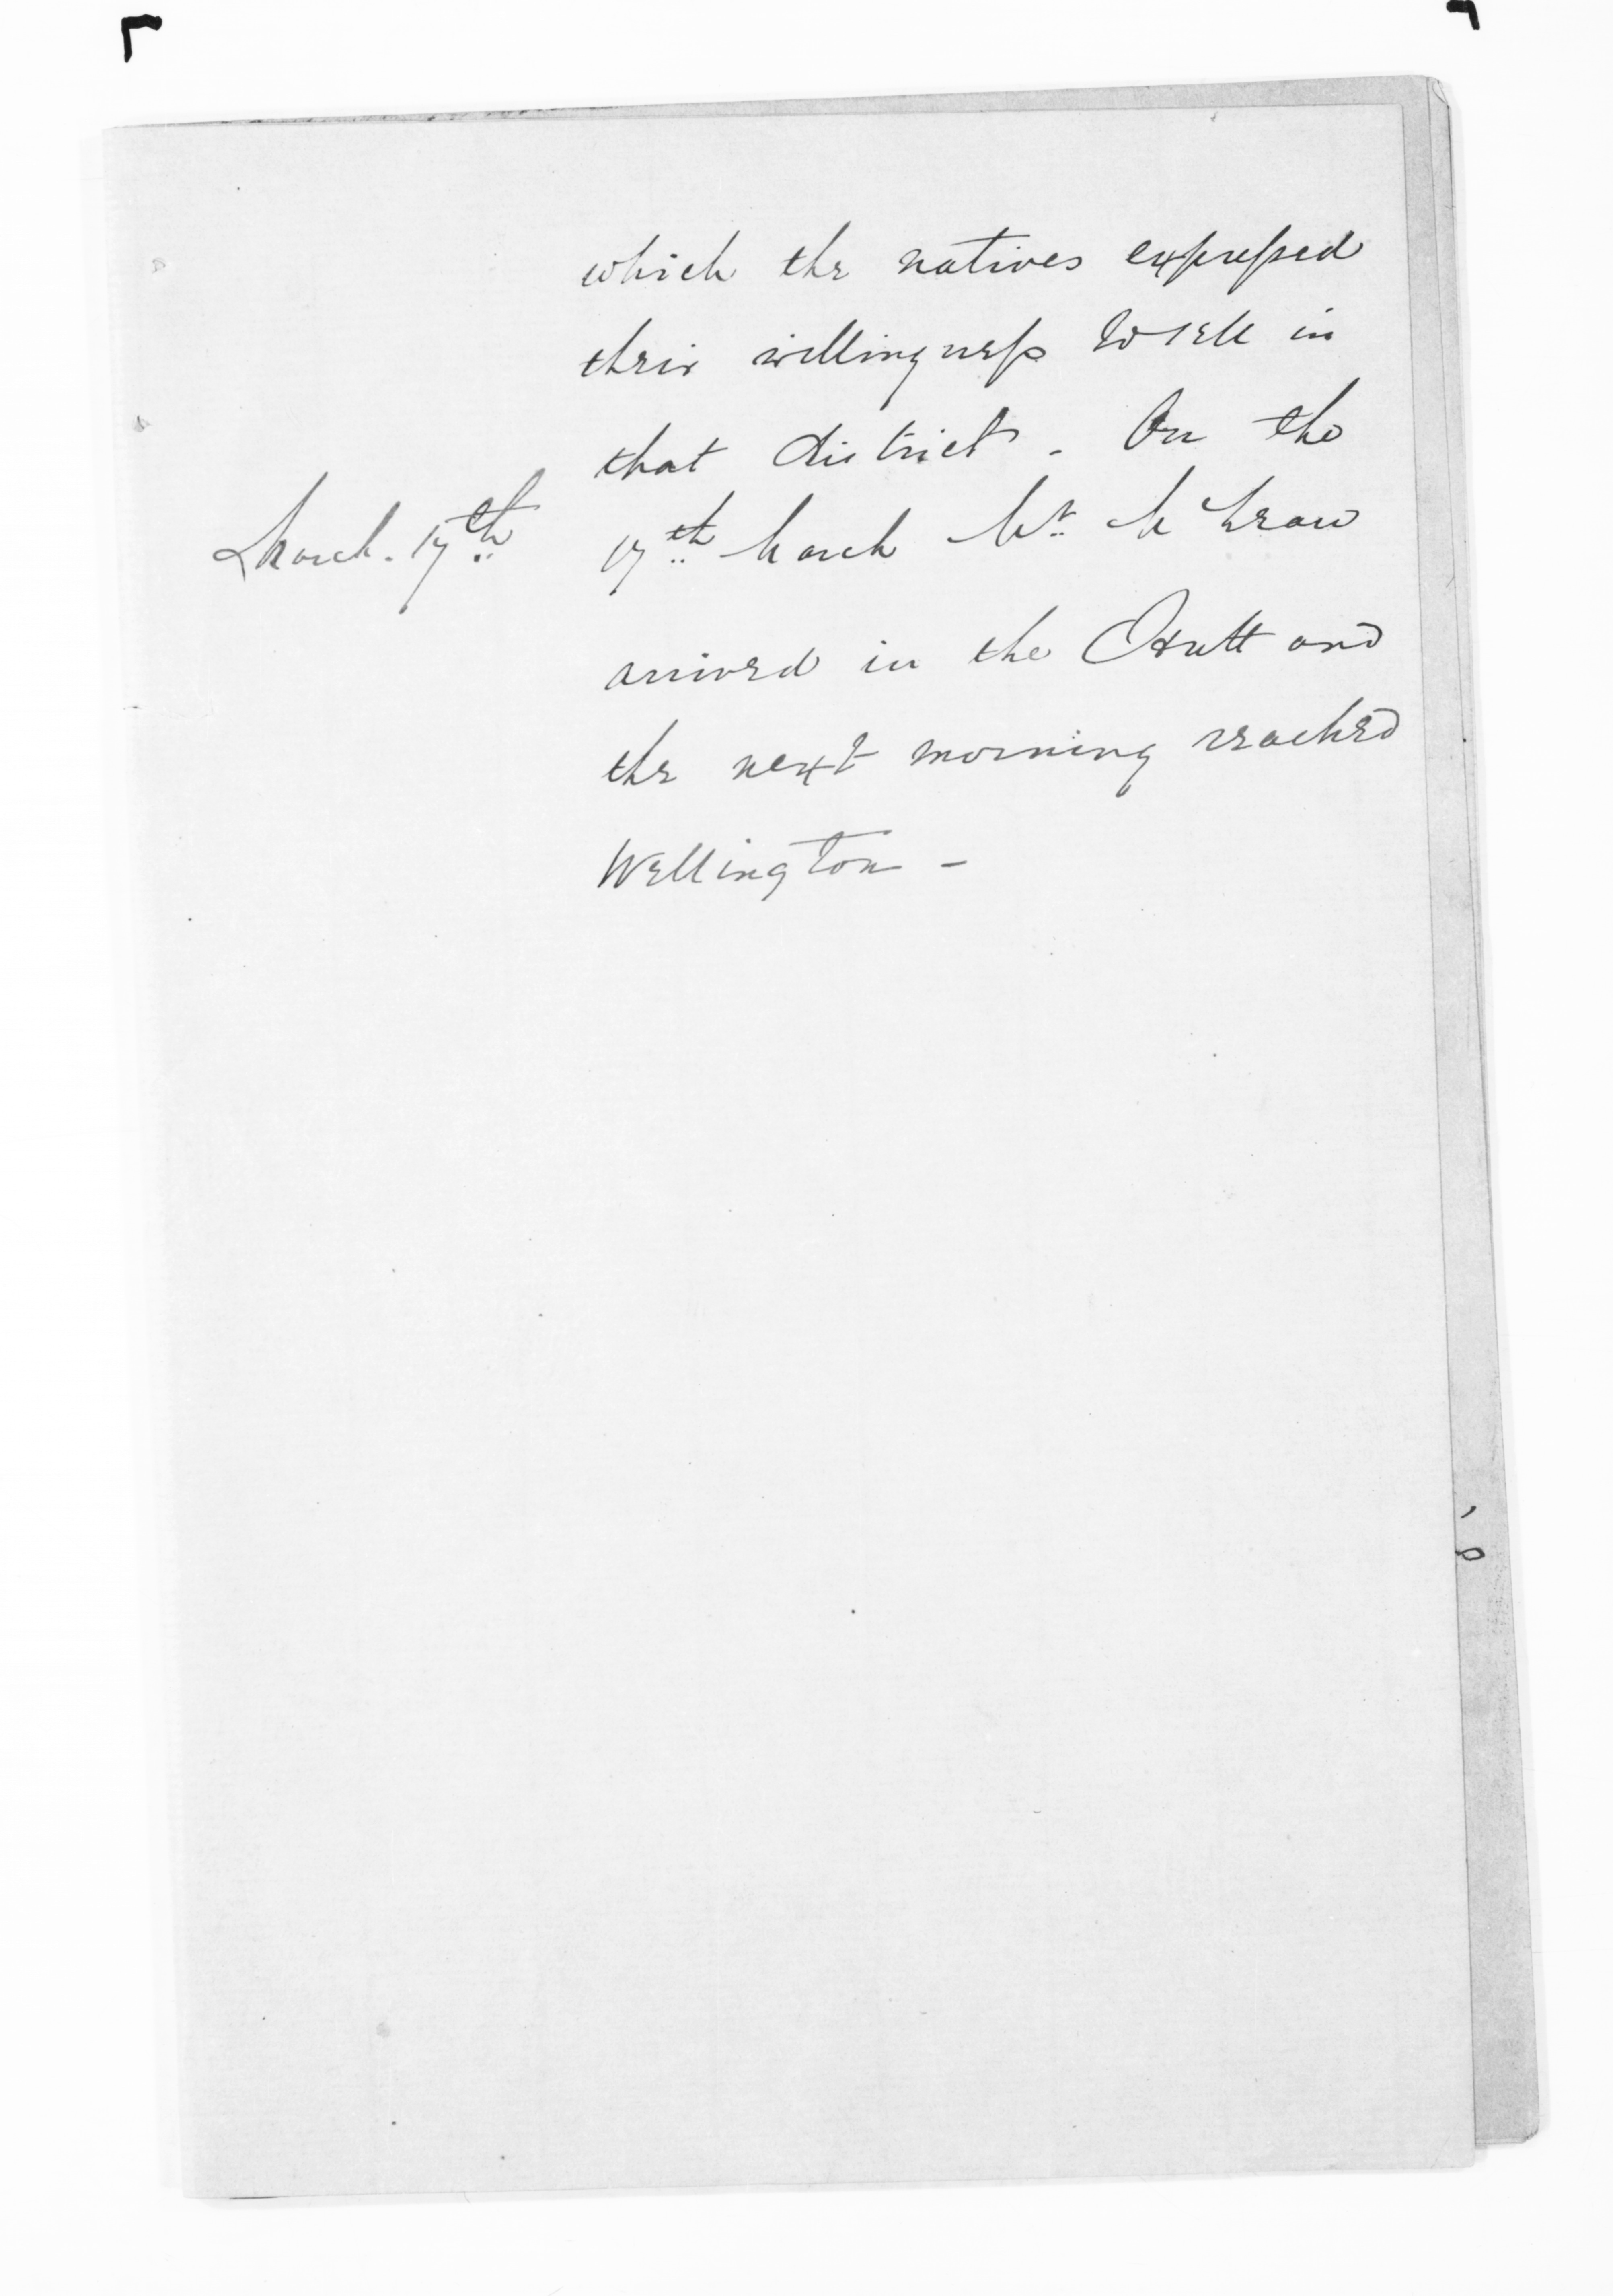 which the natives expressed
their willingness to sell in
that district. On the
March. 17th 17th March Mr McLean
arrived in the Hutt and
the next morning reached
Wellington -